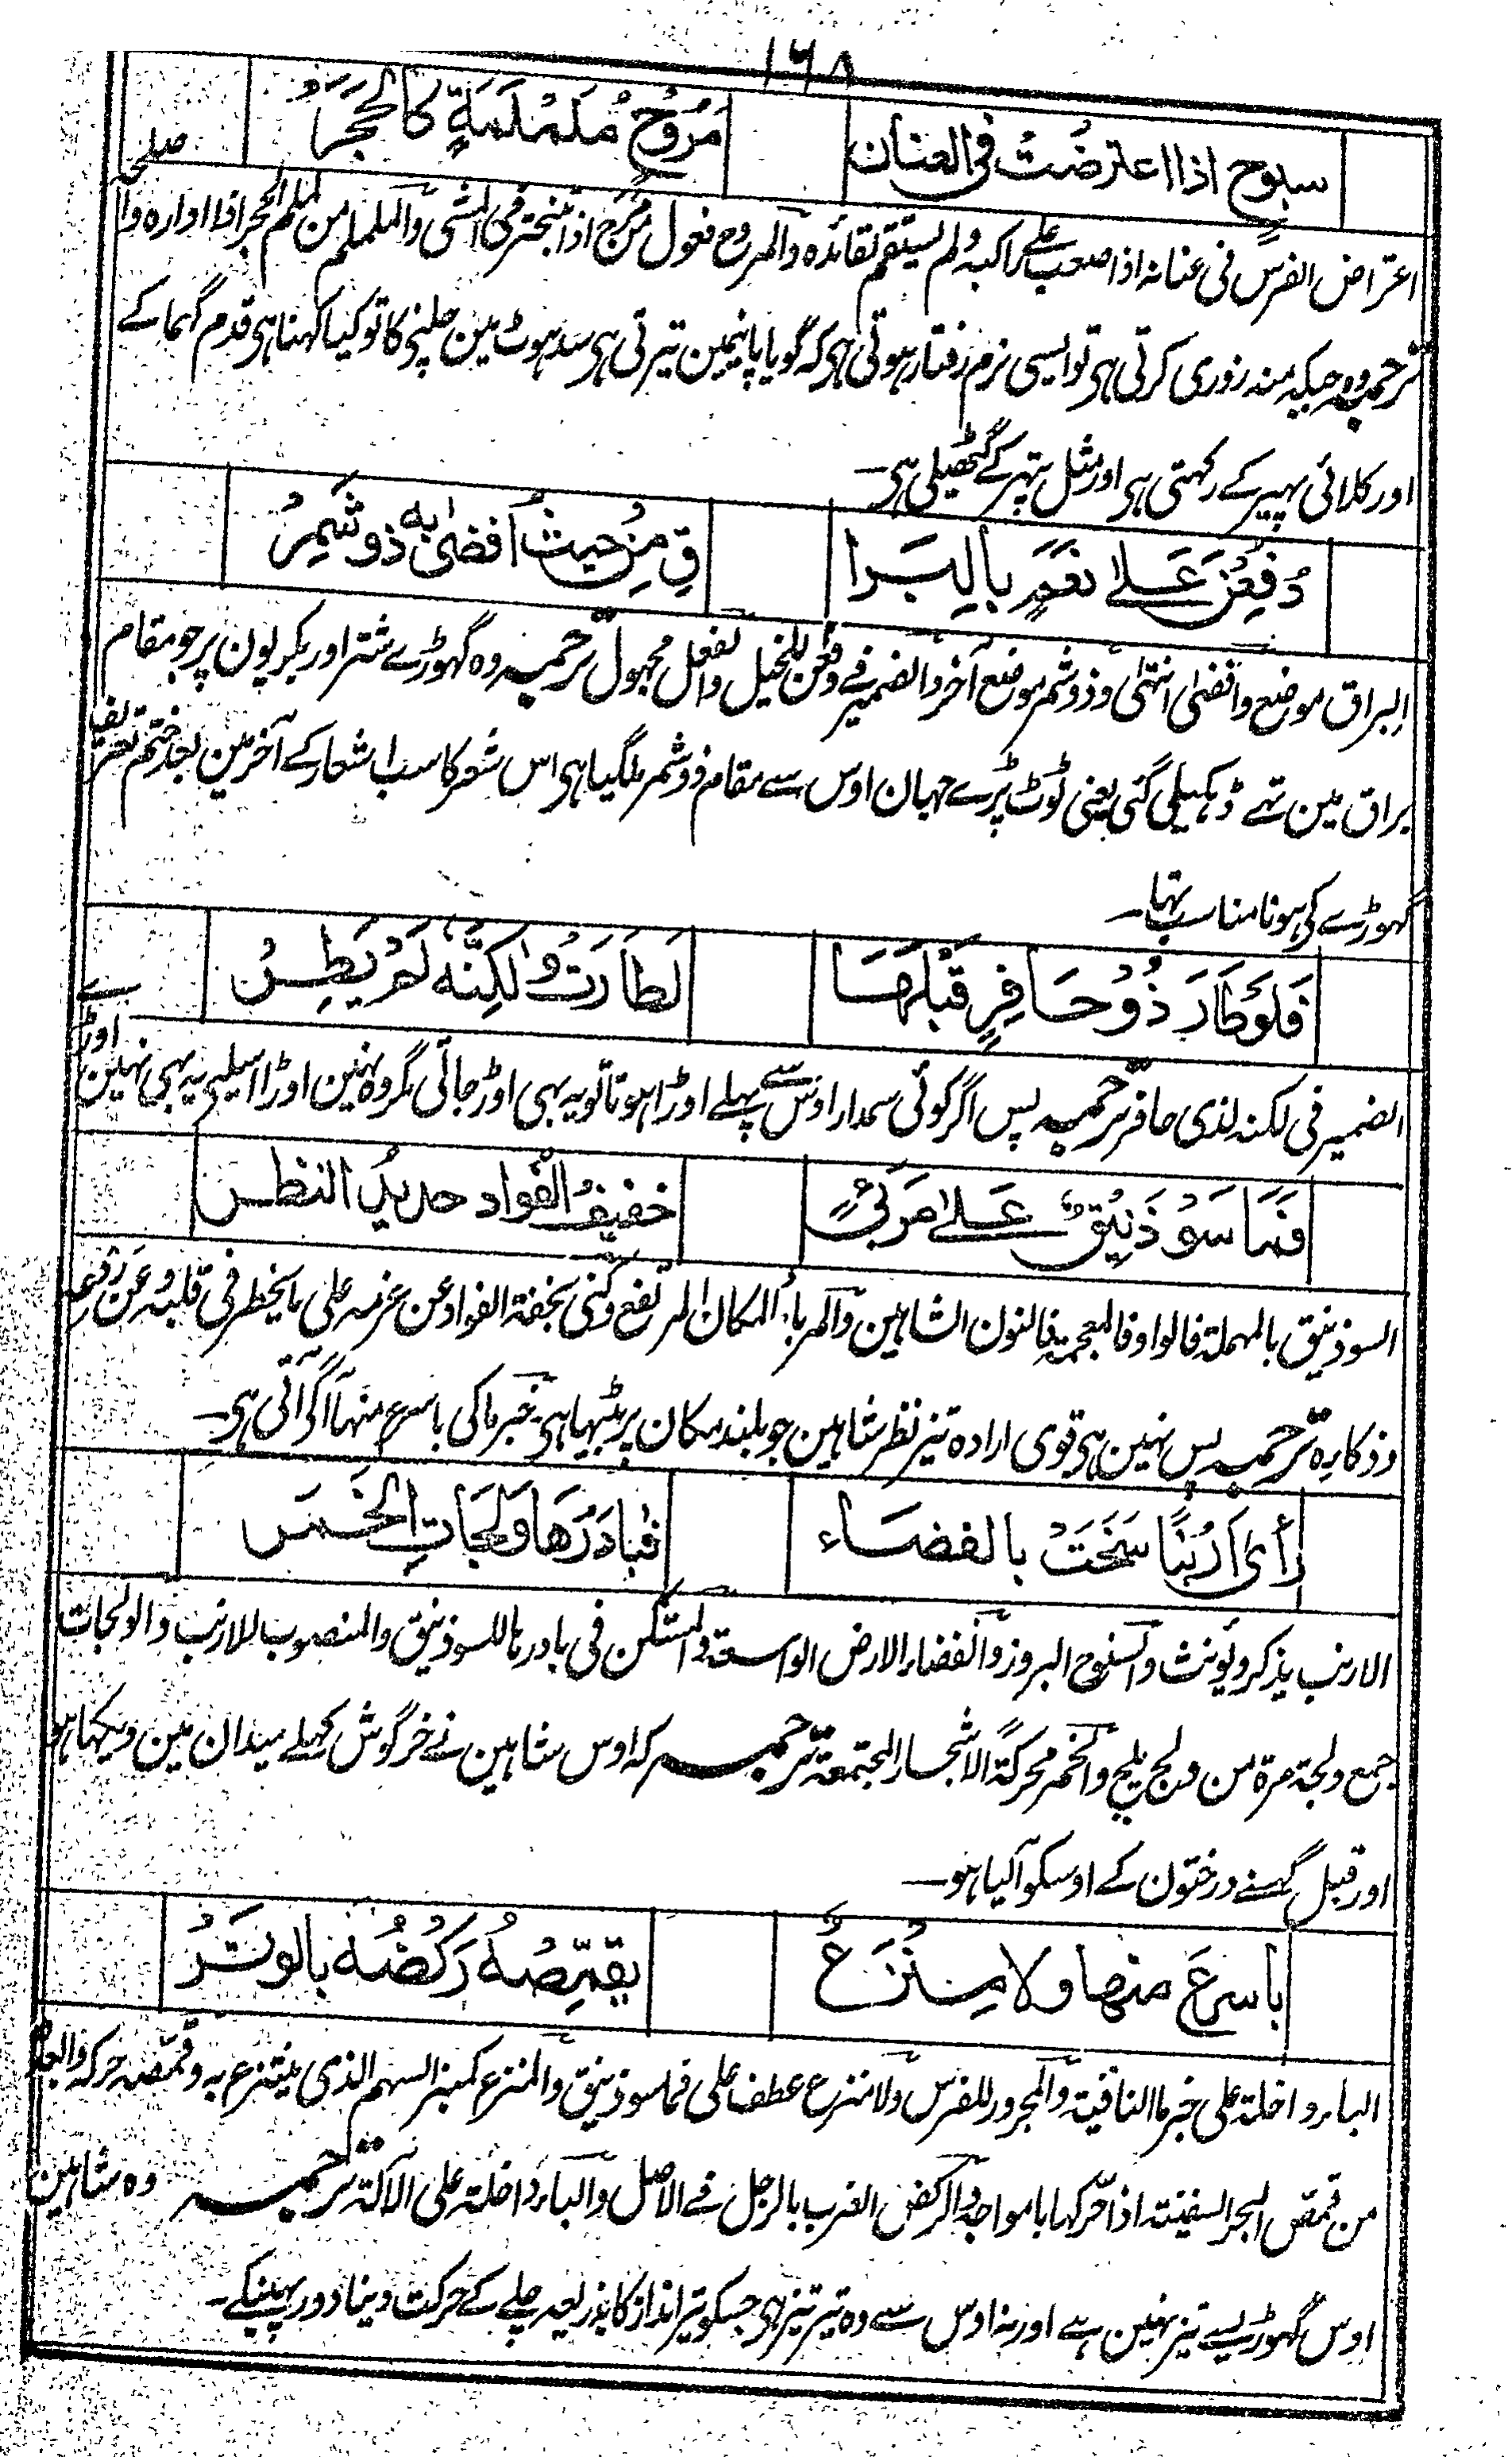 ١٦٨
سبوح اذا اعترضت فی العنان مَرُوْحٌ مُلَمْلَمَةٍ كالحَجَرُ
اعتراض الفرس فی عنانہ اذا صعب علی راکبہ ولم یستقم لقائدہ والمروح فعول من مرح اذا تبختر فی المشی والململم من لملم الحجر اذا ادارہ و
ترجمہ وہ جبکہ منہ زوری کرتی ہی تو ایسی نرم رفتار ہوتی ہی کہ گویا پانیمین تیرتی ہی سد ہوٹ مین چلنی کا تو کیا کہنا ہی قدم گہما کے
اور کلائی پہیر کے رکہتی ہی اور مثل پتہر کے گٹھیلی ہی۔
دُفِعْنَ عَلےٰ نَعَمٍ بالبِرَا قِ مِنْ حیثُ افضیٰ بہ ذو شَمِرُ
البراق موضع وافضیٰ انتہیٰ وذو شمر موضع آخر والضمیر فے دفعن للخیل والفعل مجہول ترجمہ وہ گہوڑے شتر اور بکریون پر جو مقام
براق مین تہے ڈہکیلی گئی یعنی ٹوٹ پڑے جہان اوس سے مقام ذو شمر ملگیا ہی اس شعر کا سب اشعار کے آخر مین بعد ختم تعریف
گہوڑے کی ہونا مناسب تہا۔
فَلَوْ طَارَ ذُوْ حَافِرٍ قَبْلَهَا لَطَارَتْ وَلٰكِنَّهٗ لَمْ يَطِرْ
الضمیر فی لکنہ لذی حافر ترجمہ پس اگر کوئی سمدار اوس سے پہلے اوڑا ہوتا تو یہ بہی اوڑ جاتی مگر وہ نہین اوڑا اسلیے یہ بہی نہین اوڑے
فَمَا سَوْذَنِيْقٌ عَلےٰ مَرْبَئٍ خفیفُ الفؤاد حدیدُ النظر
السوذنیق بالمہملۃ فالواو فالمعجمۃ فالنون الشاہین والمربأ المکان المرتفع وکنی بخفۃ الفواد عن عزمہ علی ما یخطر فی قلبہ وعن
وذکارہ ترجمہ پس نہین ہی قوی ارادہ تیز نظر شاہین جو بلند مکان پر بیٹہا ہی۔ خبر ما کی باسرع منہا آگی آتی ہی۔
رأى اَرْنَبًا سَنَحَتْ بالفضاء فبادَرَهَا وَلَجَاتِ الخَمَر
الارنب یذکر ویؤنث والسنوح البروز والفضاء الارض الواسعۃ والمستکن فی بادرہا للسوذنیق والمنصوب للارنب والولجات
جمع ولجۃ مرۃ من ولج یلج والخمر محرکۃً الاشجار المجتمعۃ ترجمہ کہ اوس شاہین نے خرگوش کہلے میدان مین دیکہا ہو
اور قبل گہسنے درختون کے اوسکو آلیا ہو۔
باسرعَ منھا ولا مِنْزَعٌ یقمِّصُهٗ رَكْضُهٗ بالوتَرْ
الباء داخلۃ علی خبر ما النافیۃ والمجرور للفرس ولا منزع عطف علی فما سوذنیق والمنزع کمنبر السہم الذی ینتزع بہ وقمّصہ حرکہ والعلہ
من قمّص البحر السفینۃ اذا حرّکہا بامواجہ والرکض الضرب بالرجل فے الاصل والباء داخلۃ علی الآلۃ ترجمہ وہ شاہین
اوس گہوڑے سے تیز نہین ہے اور نہ اوس سے وہ تیر تیز ہی جسکو تیر انداز کا بذریعہ چلے کے حرکت دینا دور پہینکے۔